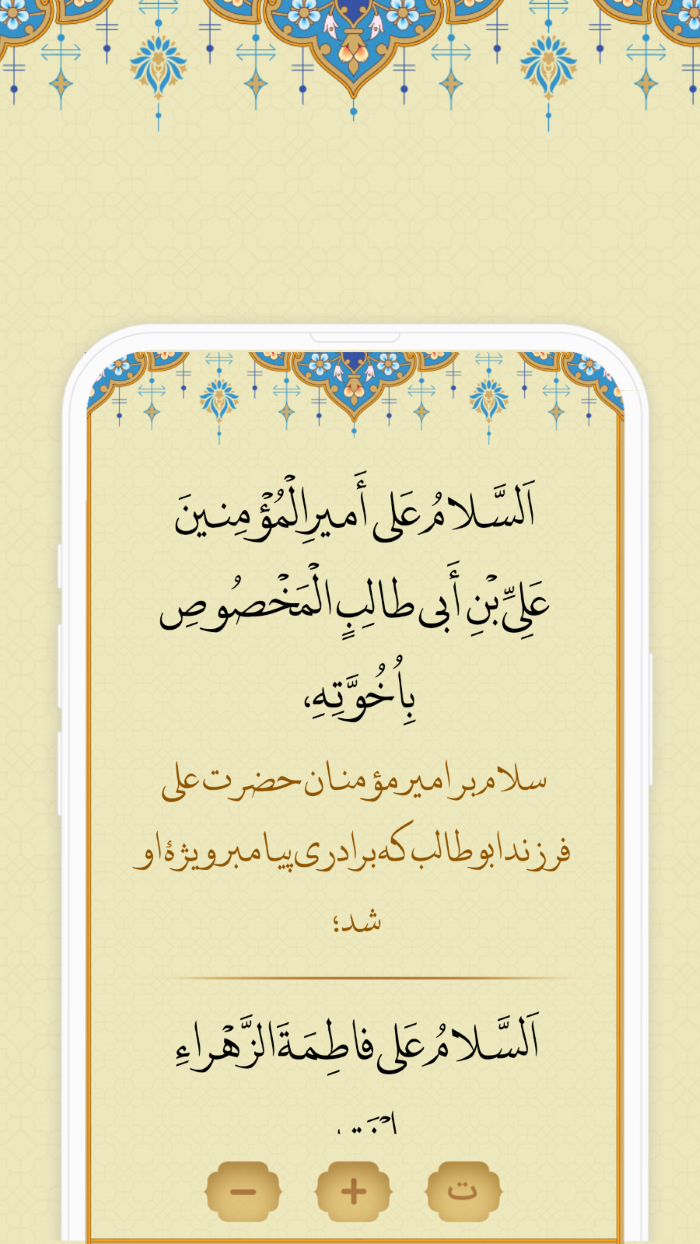 اَلسَّلامُ عَلی أَمیرِالْمُؤْمِنینَ
عَلِیِّ بْنِ أَبی طالِبٍ الْمَخْصُوصِ
بِاُخُوَّتِهِ،
سلام بر امیر مؤمنان حضرت علی
فرزند ابوطالب که برادری پیامبر ویژۀ او
شد؛
اَلسَّلامُ عَلی فاطِمَةَ الزَّهْراءِ
− + ت